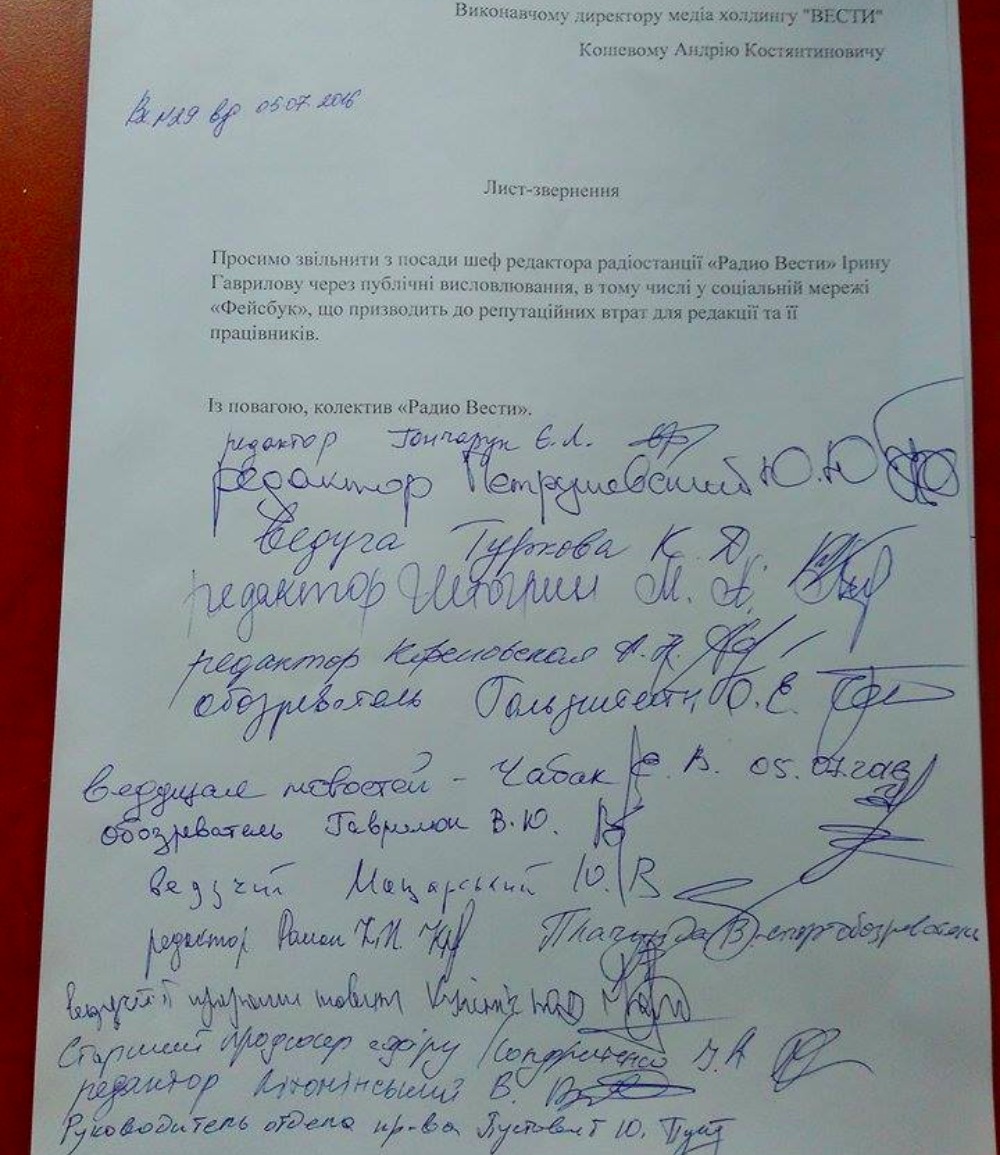 Виконавчому директору медіа холдингу "ВЕСТИ"
Кошевому Андрію Костянтиновичу
Вх №29 від 05.07.2016
Лист-звернення
Просимо звільнити з посади шеф редактора радіостанції «Радио Вести» Ірину
Гаврилову через публічні висловлювання, в тому числі у соціальній мережі
«Фейсбук», що призводить до репутаційних втрат для редакції та її
працівників.
Із повагою, колектив «Радио Вести».
редактор Гончарук Є.Л.
редактор Петрушевський Ю.Ю
Ведуча Туркова К. Д.
редактор М. А.
редактор А.А.
обозреватель Гольдштейн О.Е.
Ведущая новостей - Чабак Е. В. 05.07.2016
Обозреватель Гаврилюк В.Ю.
ведучий Мацарський Ю. В
редактор Роман К.И.
Плачинда В - спортобозреватель
ведучий програми
Старший продюсер ефіру Кондратенко І. А
редактор В.
Руководитель отдела пр-ва Пустовойт Ю.